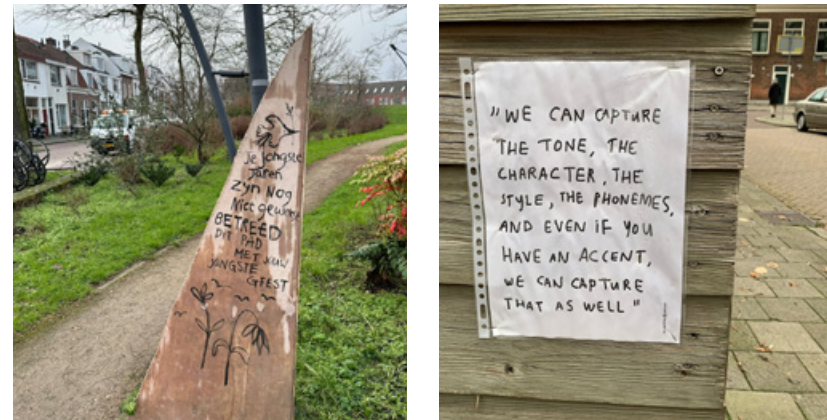 Je jongste
jaren
zyn nog
Niet geweest
BETREED
DIT PAD
MET JOUW
JONGSTE
GEEST
"WE CAN CAPTURE
THE TONE, THE
CHARACTER, THE
STYLE, THE PHONEMES,
AND EVEN IF YOU
HAVE AN ACCENT,
WE CAN CAPTURE
THAT AS WELL"